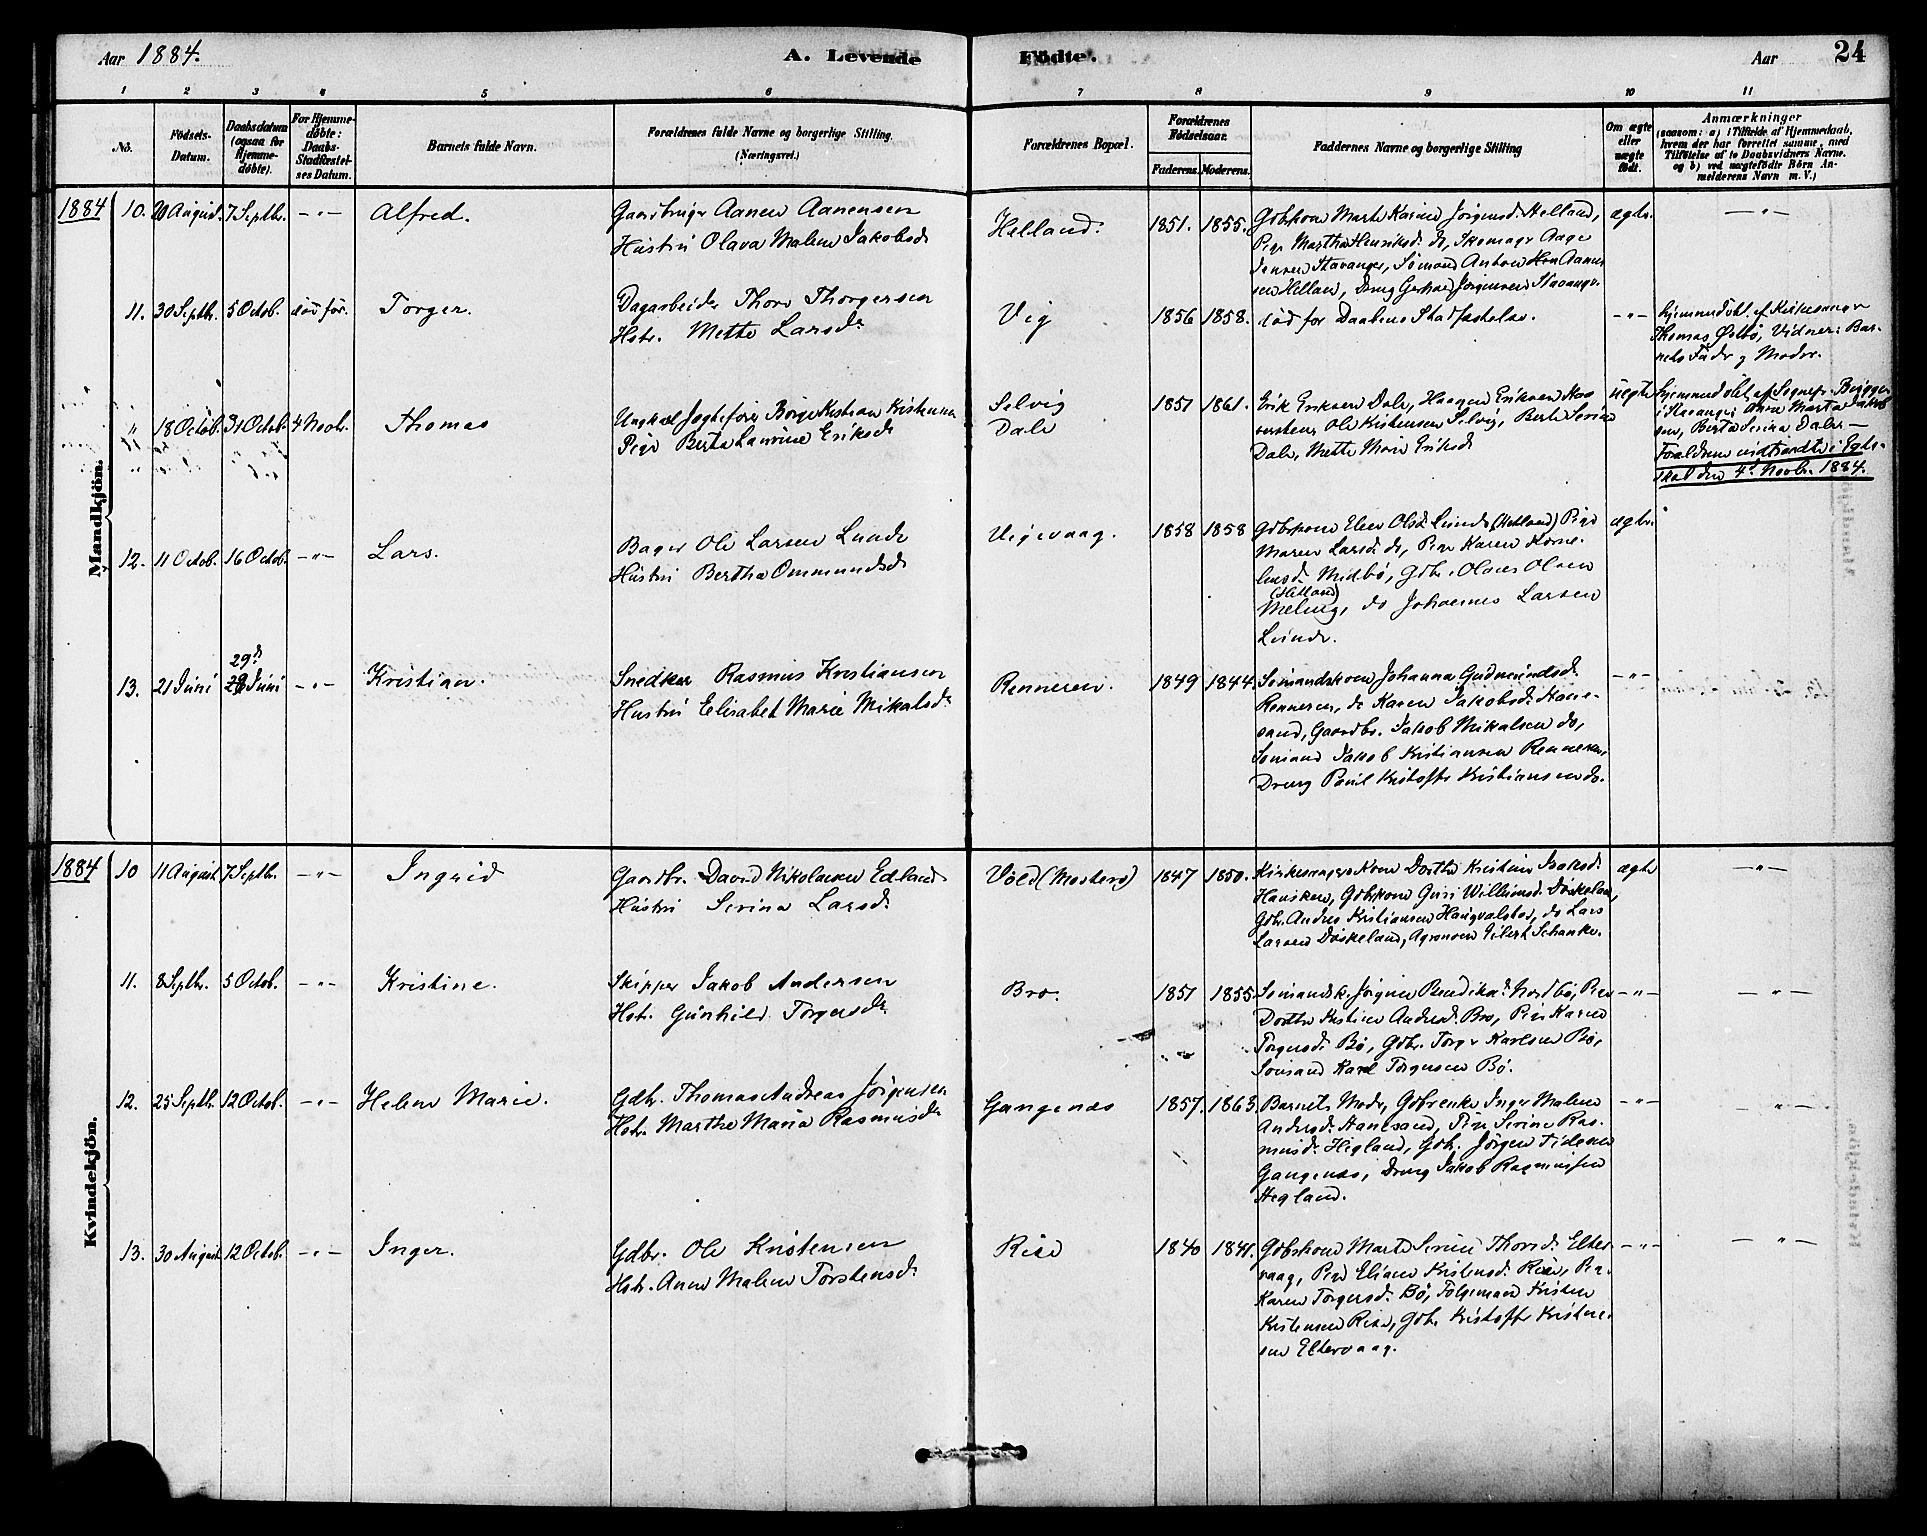 Aar 1884.
A. Levende
Födte.
Aar
24
1 2 3 4 5 6 7 8 9 10 11
No.
Födsels-
Datum.
Daabsdatum
(ogsaa for
Hjemme-
döbte).
For Hjemme-
döbte:
Daabs-
Stadfæstel-
ses Datum.
Barnets fulde Navn.
Forældrenes fulde Navne og borgerlige Stilling.
(Næringsvei.)
Forældrenes Bopæl.
Forældrenes
Födselsaar.
Faderens. Moderens.
Faddernes Navne og borgerlige Stilling
Om ægte
eller
uægte
födt.
Anmærkninger
(saasom: a) i Tilfælde af Hjemmedaab,
hvem der har forrettet samme, med
Tilföielse af to Daabsvidners Navne.
og b) ved uægtefödte Börn An-
melderens Navn m. V.)
Mandkjön.
1884 10. 20 August. 7 Septbr. -"- Alfred.
Gaardbruger Aanen Aanensen
Hustru Olava Malene Jakobsd.
Helland. 1851. 1855.
Gdbrkone Marte Karine Jörgensd. Helland,
Pige Martha Henriksd. do, Skomager Aage
Jensen Stavanger, Sömand Anton Aanen
sen Helland, Dreng Jörgensen Stavanger.
ægte. -"-
11. 30 Septbr. 5 Octob. död för. Torger.
Dagarbeider Thore Thorgersen
Hstr. Mette Larsd.
Vig 1856 1858.
död for Daabens Stadfæstelse.
-"-
hjemmedöbt af Kirkesanger
Thomas Östbö, Vidner: Bar-
nets Fader og Moder.
" 18 Octob. 31 Octob. 4 Novbr. Thomas
Ungkarl Jægtefører Börge Kristian Kristensen
Pige Berta Laurine Eriksd.
Selvig
Dale
1851 1861.
Erik Eriksen Dale, Haagen Eriksen
Ole Kristensen Selvig, Berte Serine
Dale, Mette Marie Eriksd.
uægte
hjemmedöbt af Sognepr. Brügger
i Stavanger Marta Jakob
sen, Berta Serina Dale. —
Forældrene indtraadte i Egte-
skab den 4de Novbr. 1884.
12. 11 Octob. 16 Octob. -"- Lars.
Bager Ole Larsen Lunde
Hustru Bertha Ommundsd.
Vigevaag. 1858 1858
Gdbrkone Elen Olsd. Lunde (Hetland) Pige
Maren Larsd. do, Pige Karen Korne-
liusd. Midbö, Gdbr. Olaus Olsen
(Hetland)
Meling, do Johannes Larsen
Lunde.
ægte.
29d.
13. 21 Juni Juni -"- Kristian.
Snedker Rasmus Kristiansen
Hustru Elisabet Marie Mikalsd.
Renneren. 1849 1844.
Sömandskone Johanna Gudmundsd.
Renneren, do Karen Jakobsd. Hane-
sand, Gaardbr. Jakob Mikalsen do,
Sömand Jakob Kristiansen Renneren,
Dreng Paul Kristoffer Kristiansen do.
-"-
Kvindekjön.
1884 10 11 August 7 Septbr. -"- Ingrid
Gaardbr. David Nikolaisen Edland
Hustru Serina Larsd.
Vold (Mosterö) 1847 1850.
Kirkesangerkone Dorthe Kristine Isaksd.
Hausken, Gdbrkone Guri Willumsd. Döskeland,
Gdbr. Andres Kristiansen Haugvalstad, do Lars
Larsen Döskeland, Agronom Eilert Schanke.
ægte -"-
11. 8 Septbr. 5 Octob. -"- Kristine.
Skipper Jakob Andersen
Hstr. Gunhild Torgersd.
Bro. 1851 1855
Sömandsk. Jörgine Bendiksd. Nordbö, Pige
Dorthe Kristine Andersd. Bro, Pige Karen
Torgersd. Bö, Gdbr. Torger Karlsen Bö,
Sömand Karl Torgersen Bö.
-"- -"-
12. 25 Septbr. 12 Octob. -"- Helene Marie.
Gdbr. Thomas Andreas Jörgensen
Hstr. Marthe Maria Rasmusd.
Gangenæs 1857. 1863.
Barnets Moder, Gdbrenke Inger Malene
Andersd. Hanesand, Pige Serine Ras-
musd. Hegland, Gdbr. Jörgen
Gangenæs, Dreng Jakob Rasmussen
Hegland.
-"- -"-
13. 30 August 12 Octob. -"- Inger.
Gdbr. Ole Kristensen
Hstr. Anne Malene Torstensd.
Reso 1840 1841.
Gdbrkone Marte Serine Thorsd. Elter-
vaag, Pige Eliane Kristensd. , Pige
Karen Torgersd. Bö, Fölgemand Kristen
Kristensen , Gdbr. Kristoffer Kristen-
sen Eltervaag.
-"- -"-